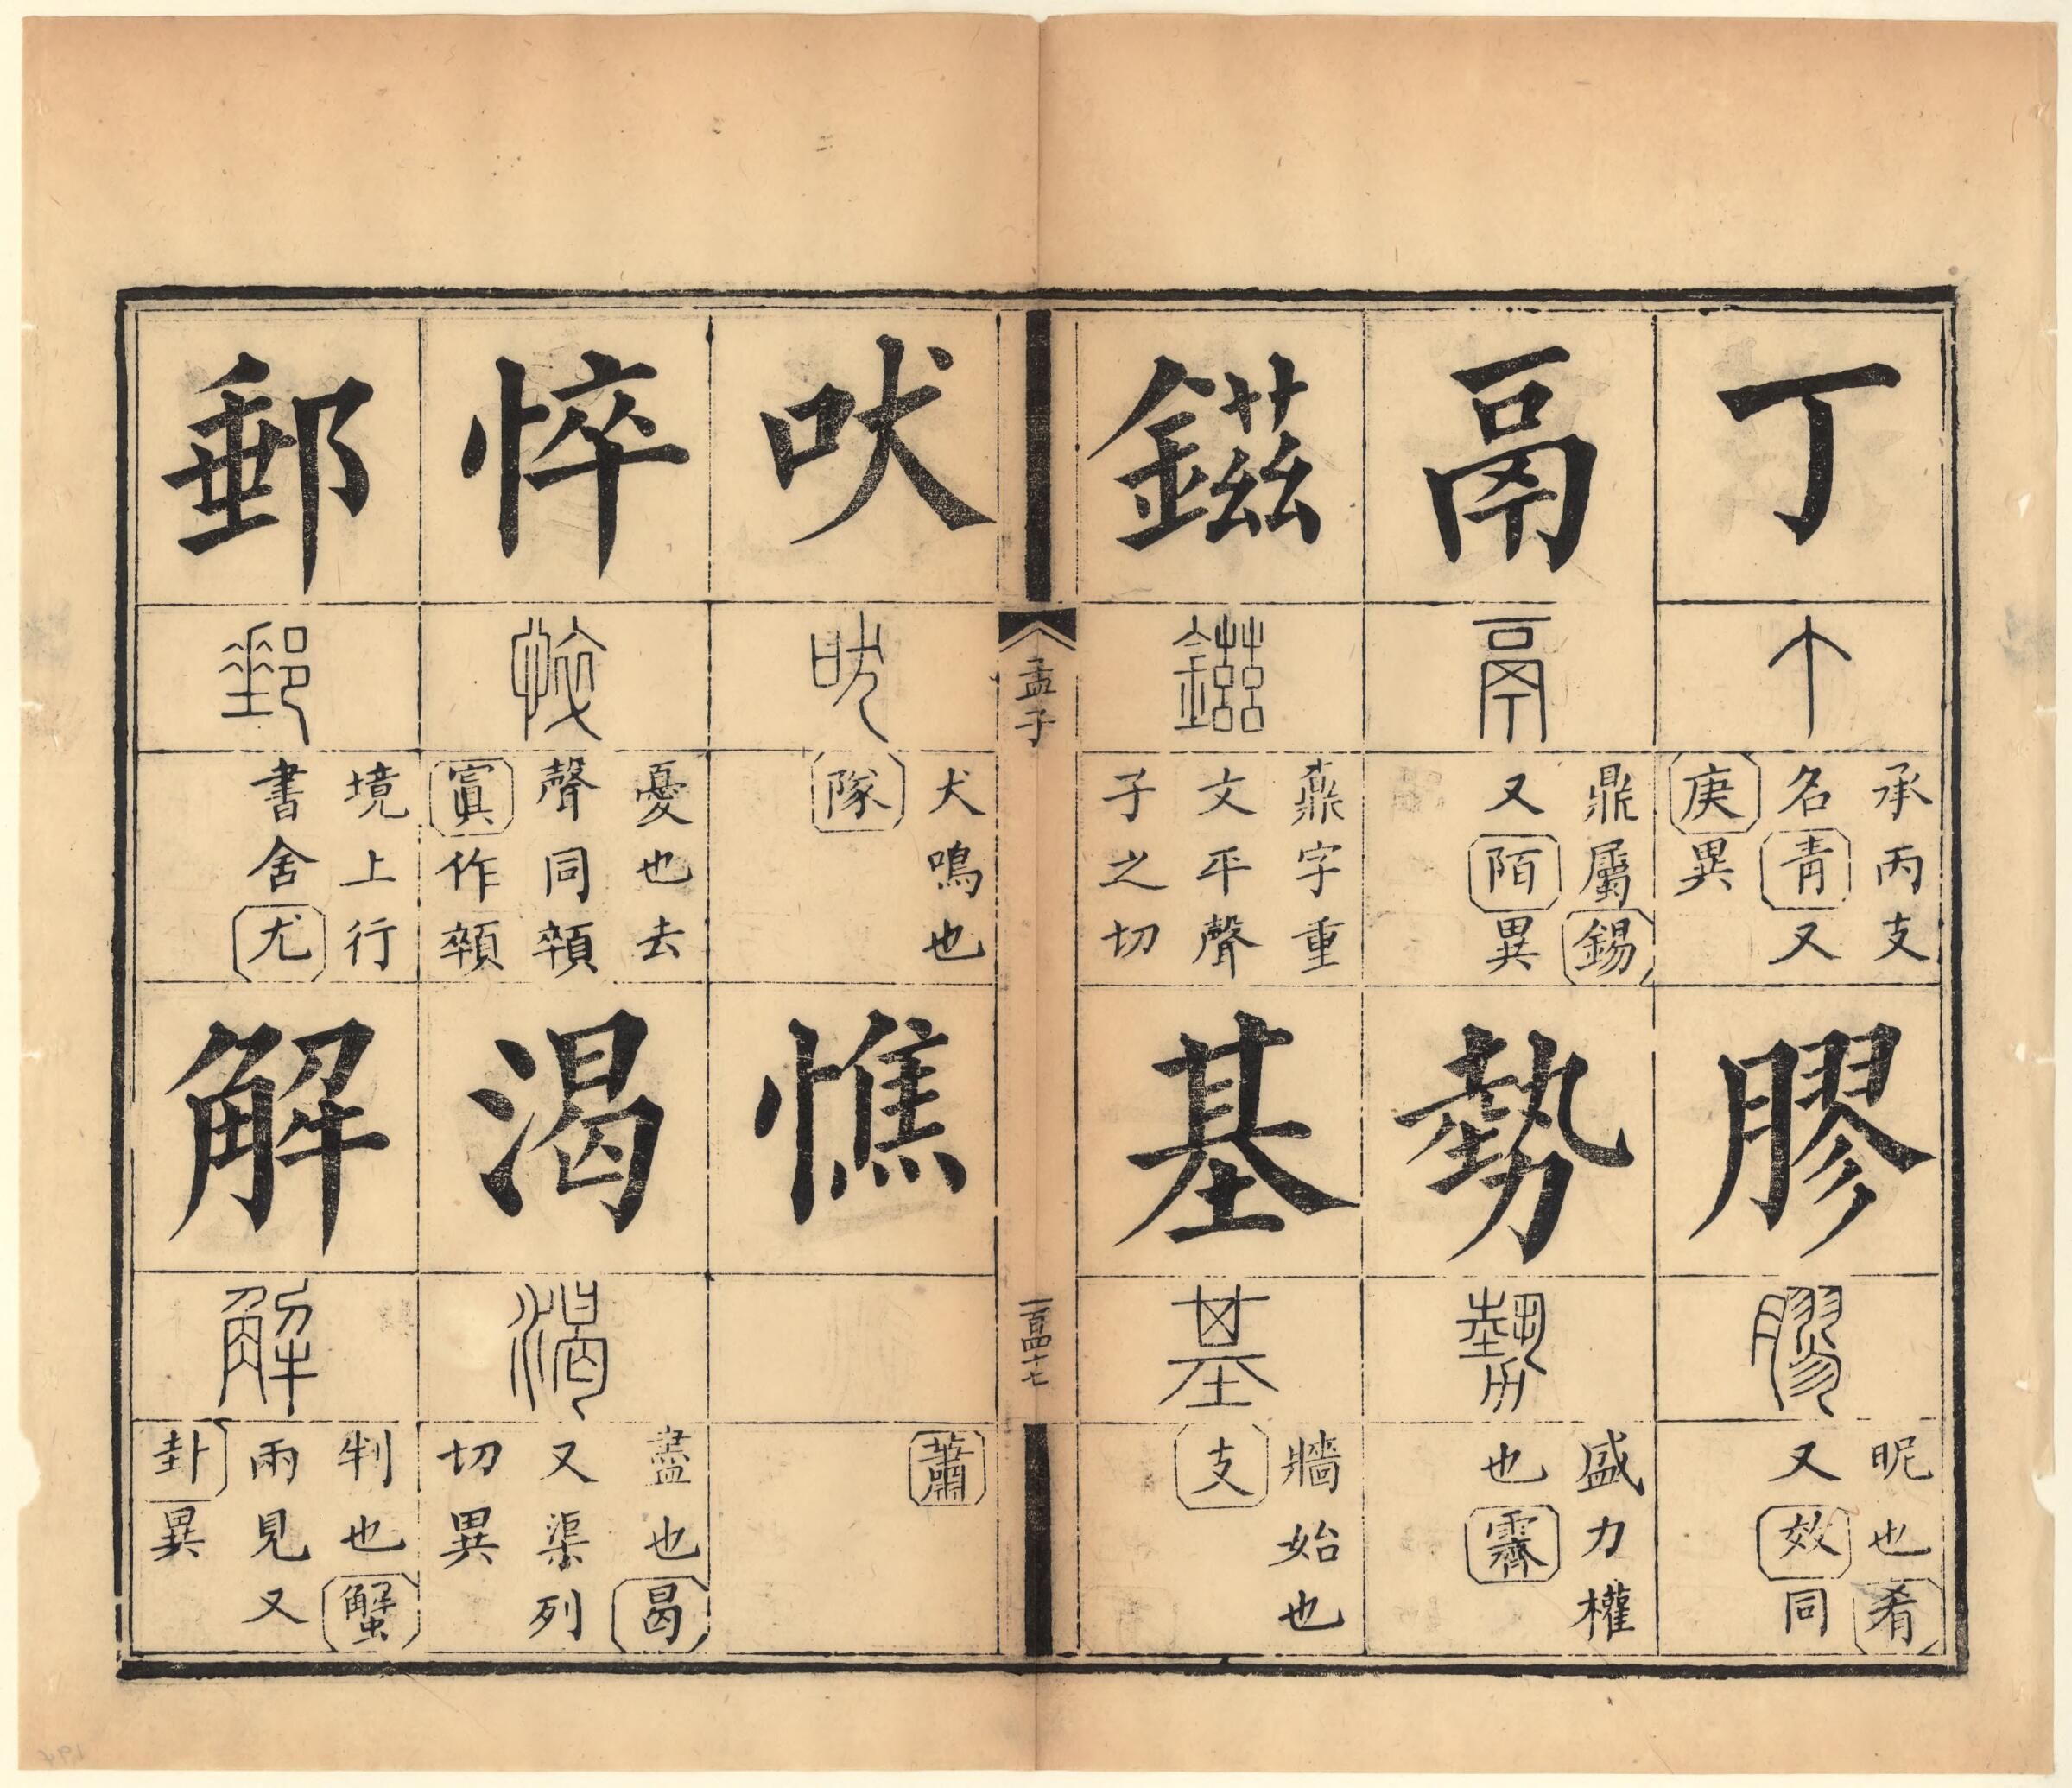 丁
丁
承丙支
名青又
庚異
膠
膠
昵也肴
又效同
鬲
鬲
鼎屬錫
又陌異
勢
勢
盛力權
也霽
鎡
鎡
鼒字重
文平聲
子之切
基
基
牆始也
支
孟子
一百四十七
吠
吠
犬鳴也
隊
憔
蕭
悴
悴
憂也去
聲同顇
寘作顇
渴
渴
盡也曷
又渠列
切異
郵
郵
境上行
書舍尤
解
解
判也蟹
兩見又
卦異